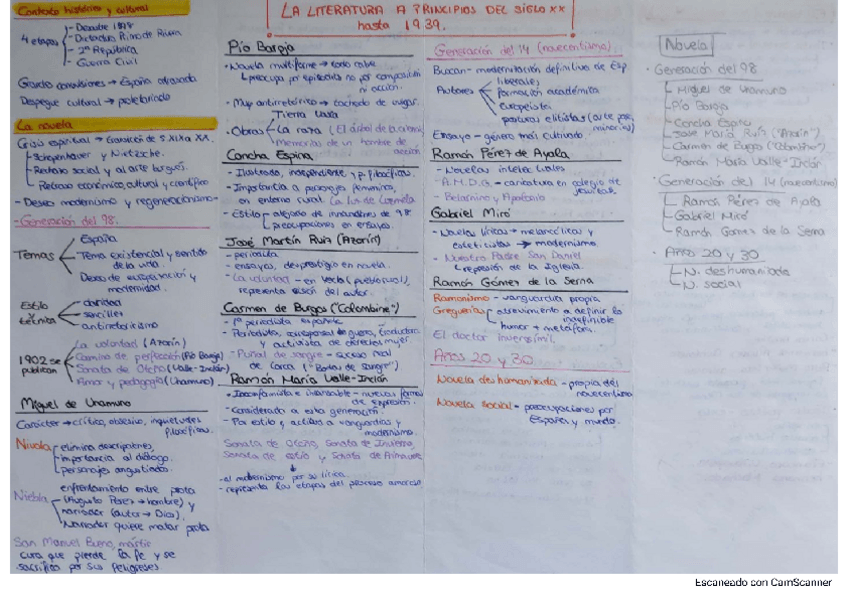 LA LITERATURA A PRINCIPIOS DEL SIGLO XX
hasta 1939.
Contexto histórico y cultural
4 etapas
- Desastre 1898
- Dictadura Primo de Rivera
- 2ª República
- Guerra Civil
Grandes convulsiones → España atrasada
Despegue cultural → proletariado
La novela
Crisis espiritual → transición de S.XIX a XX.
Schopenhauer y Nietzsche.
Rechazo social y al arte burgués.
Retroceso económico, cultural y científico
- Deseo modernismo y regeneracionismo
- Generación del 98.
Temas
España
Tema existencial y sentido
de la vida.
Deseo de europeización y
modernidad.
Estilo
y
técnica
claridad
sencillez
antirretoricismo
1902 se
publican
La voluntad (Azorín)
Camino de perfección (Pío Baroja)
Sonata de Otoño (Valle-Inclán)
Amor y pedagogía (Unamuno)
Miguel de Unamuno
Carácter → crítico, obsesivo, inquietudes
filosóficas.
Nivola
elimina descripciones
importancia al diálogo.
personajes angustiados.
Niebla
enfrentamiento entre prota
(Augusto Pérez → hombre) y
narrador (autor → Dios).
Narrador quiere matar prota
San Manuel Bueno, mártir
cura que pierde la fe y se
sacrifica por sus feligreses
Pío Baroja
- Novela multiforme → todo cabe
preocupa por episodio no por composición
ni acción.
- Muy antirretórico → tachado de vulgar.
- Obras
Tierra vasca
La raza (El árbol de la ciencia)
Memorias de un hombre de
acción
Concha Espina
- Ilustrada, independiente y pacifista.
- Importancia a personaje femenino,
en entorno rural. La luz de Luzmela
- Estilo
alejado de innovaciones de 98
preocupaciones en ensayos.
José Martín Ruiz (Azorín)
- periodista
- ensayos, desprestigio en novela.
- La voluntad - en Yecla (pueblo rural),
representa visión del autor.
Carmen de Burgos ("Colombine")
- 1ª periodista española
- Periodista, corresponsal de guerra, traductora
y activista de derechos mujer
- Puñal de sangre - suceso real
de Lorca ("Bodas de Sangre")
Ramón María Valle-Inclán
+ Inconformista e incansable - nuevas formas
de expresión.
- Considerado a esta generación.
- Por estilo, actitud a vanguardias y
modernismo.
Sonata de Otoño, Sonata de Invierno,
Sonata de estío y Sonata de Primavera
- al modernismo por su lírica
- representa las etapas del proceso amoroso
Generación del 14 (novecentismo).
Buscan - modernización definitiva de Esp.
Autores
liberales
formación académica
europeístas
posturas elitistas (arte para
minorías)
Ensayo - género más cultivado
Ramón Pérez de Ayala
- Novelas intelectuales
- A.M.D.G. - caricatura en colegio de
jesuitas.
- Belarmino y Apolonio
Gabriel Miró
- Novelas líricas → melancólicas y
esteticistas → modernismo.
- Nuestro Padre San Daniel
represión de la Iglesia.
Ramón Gómez de la Serna
Ramonismo - vanguardia propia
Greguerías
atrevimiento a definir lo
indefinible
humor + metáfora.
El doctor inverosímil.
Años 20 y 30
Novela deshumanizada - propia del
novecentismo
Novela social - preocupaciones por
España y mundo.
Novela
· Generación del 98
Miguel de Unamuno
Pío Baroja
Concha Espina
José María Ruíz ("Azorín")
Carmen de Burgos ("Colombine")
Ramón María Valle-Inclán
· Generación del 14 (novecentismo)
Ramón Pérez de Ayala
Gabriel Miró
Ramón Gómez de la Serna
· Años 20 y 30
N. deshumanizada
N. social
Escaneado con CamScanner